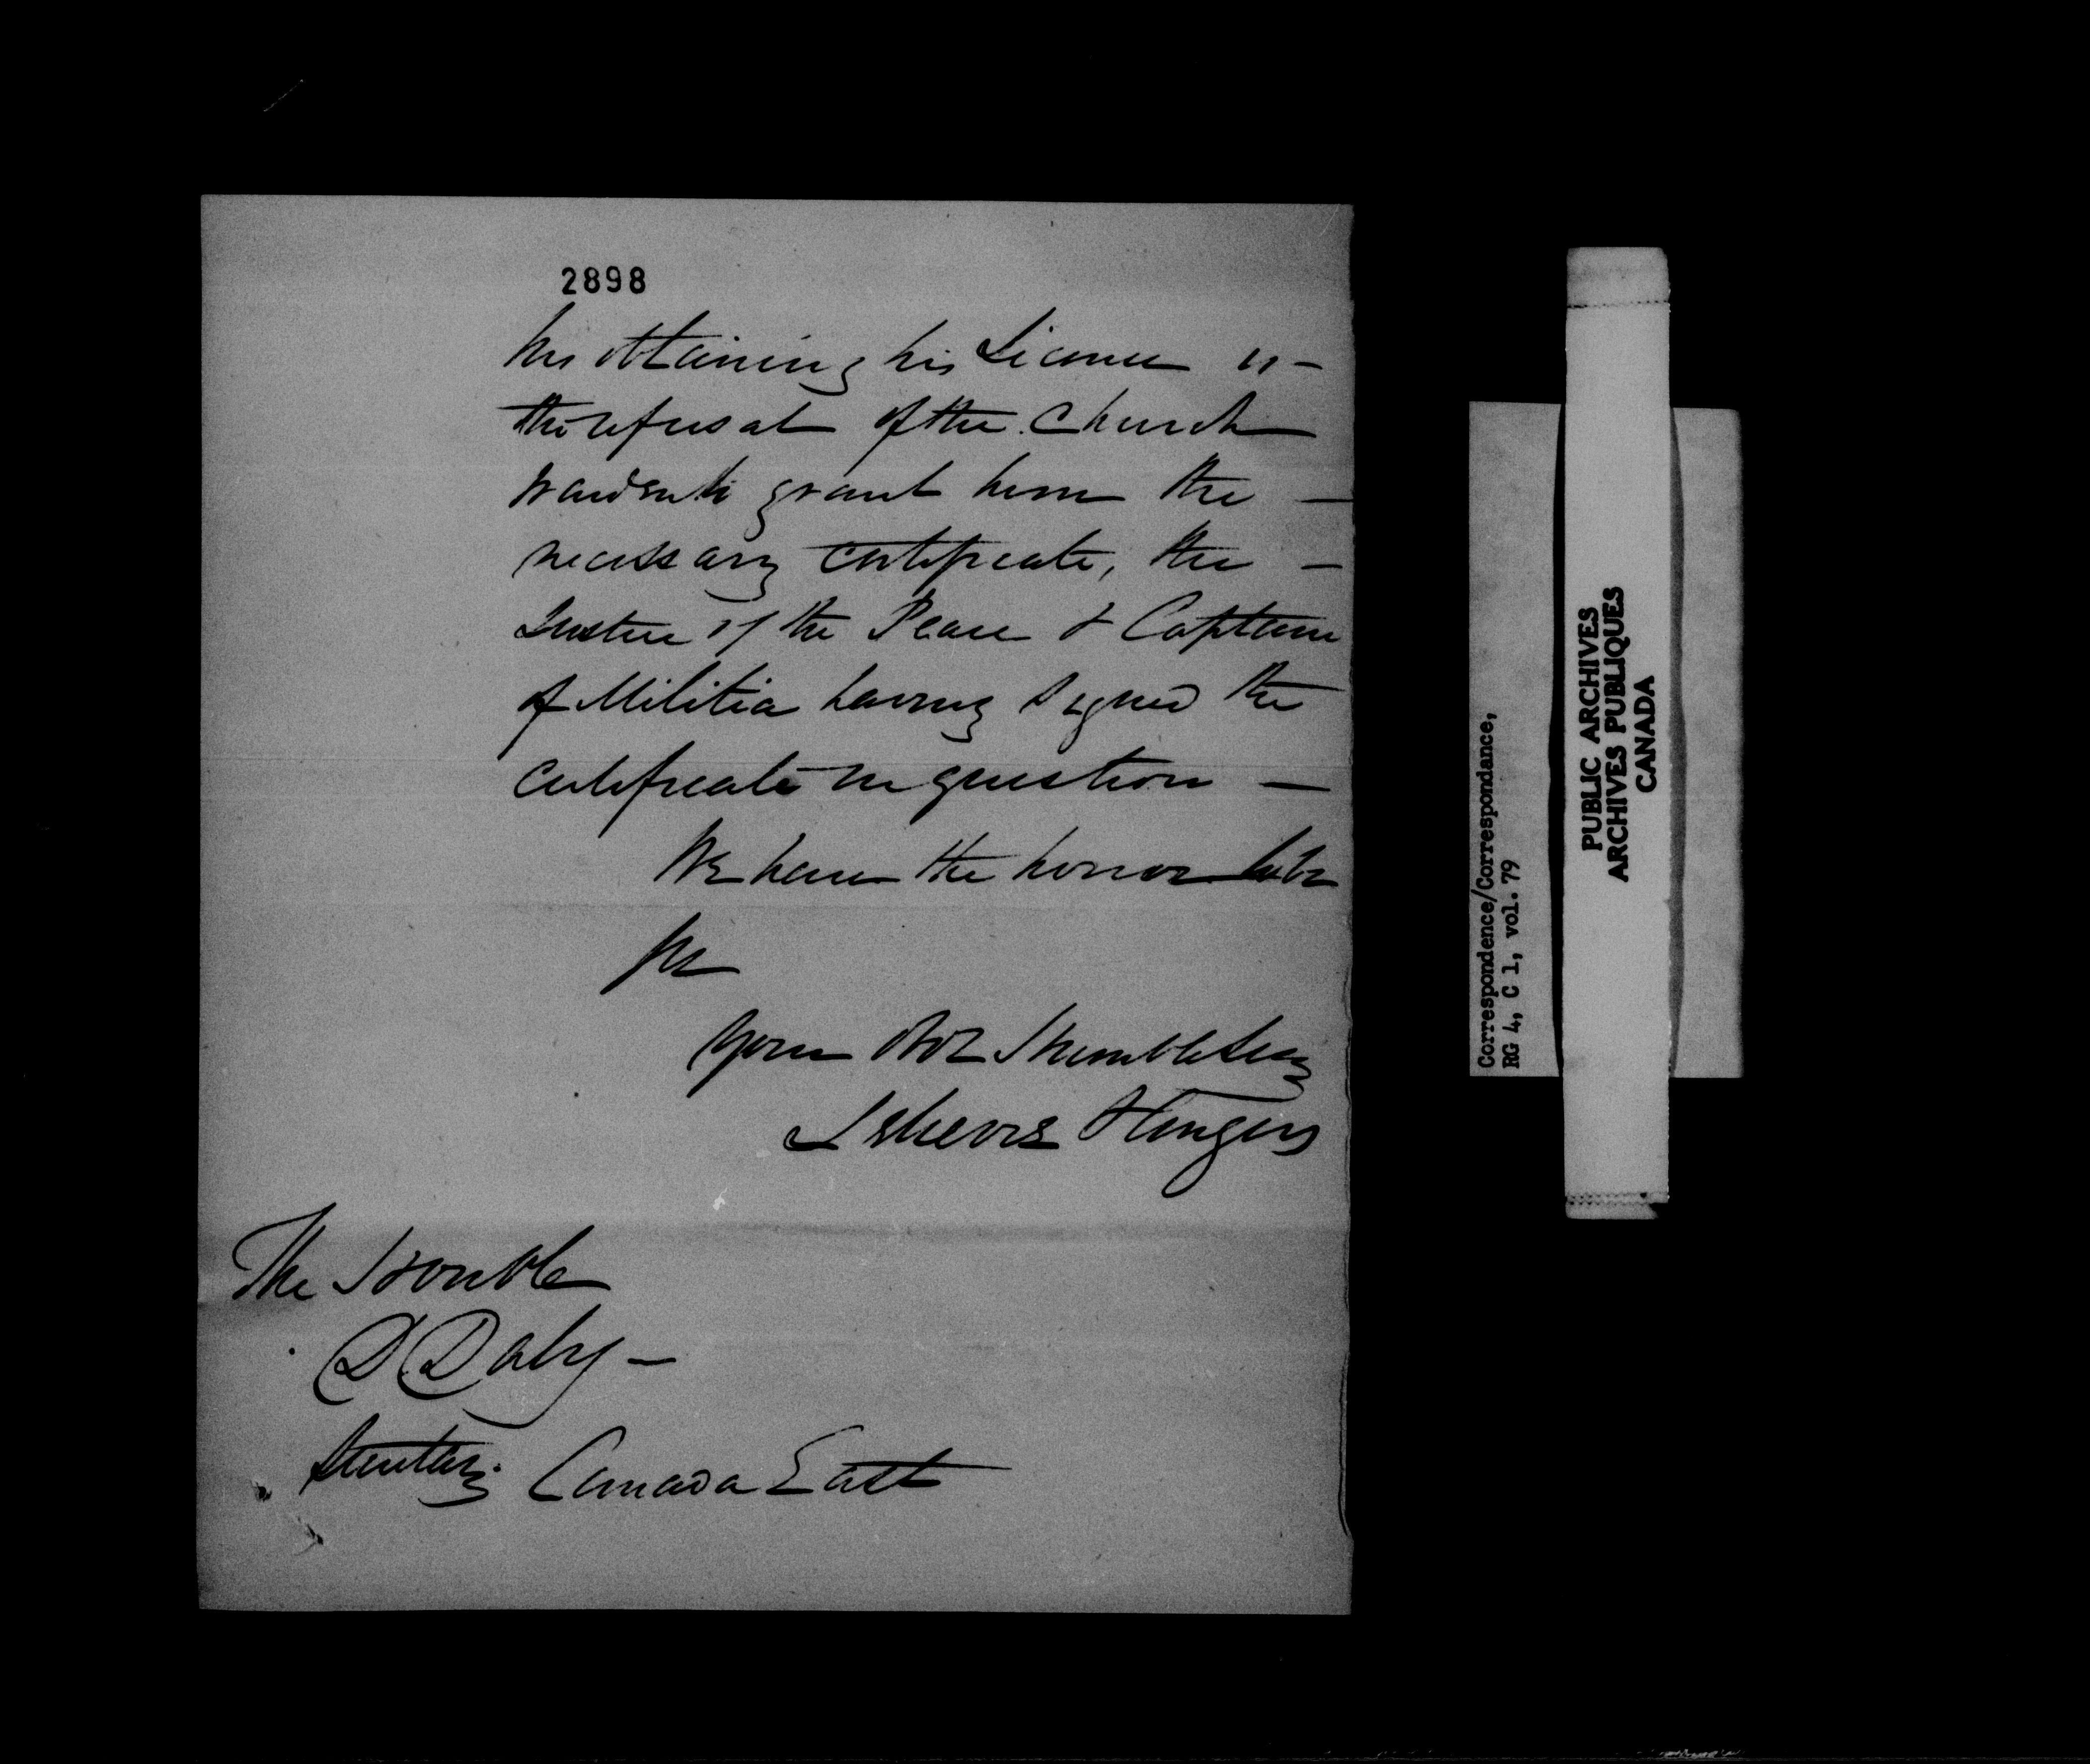 2898
his obtaining his Licence is —
the refusal of the Church
wardens to grant him the —
necessary certificate, the —
Justice of the Peace & Captain
of Militia having signed the
certificate in question —
We have the honor to be
Sir
Your Obt humble
The Honble
D Daly —
Secretary Canada East
Correspondence/Correspondance,
RG 4, C 1, vol. 79
PUBLIC ARCHIVES
ARCHIVES PUBLIQUES
CANADA